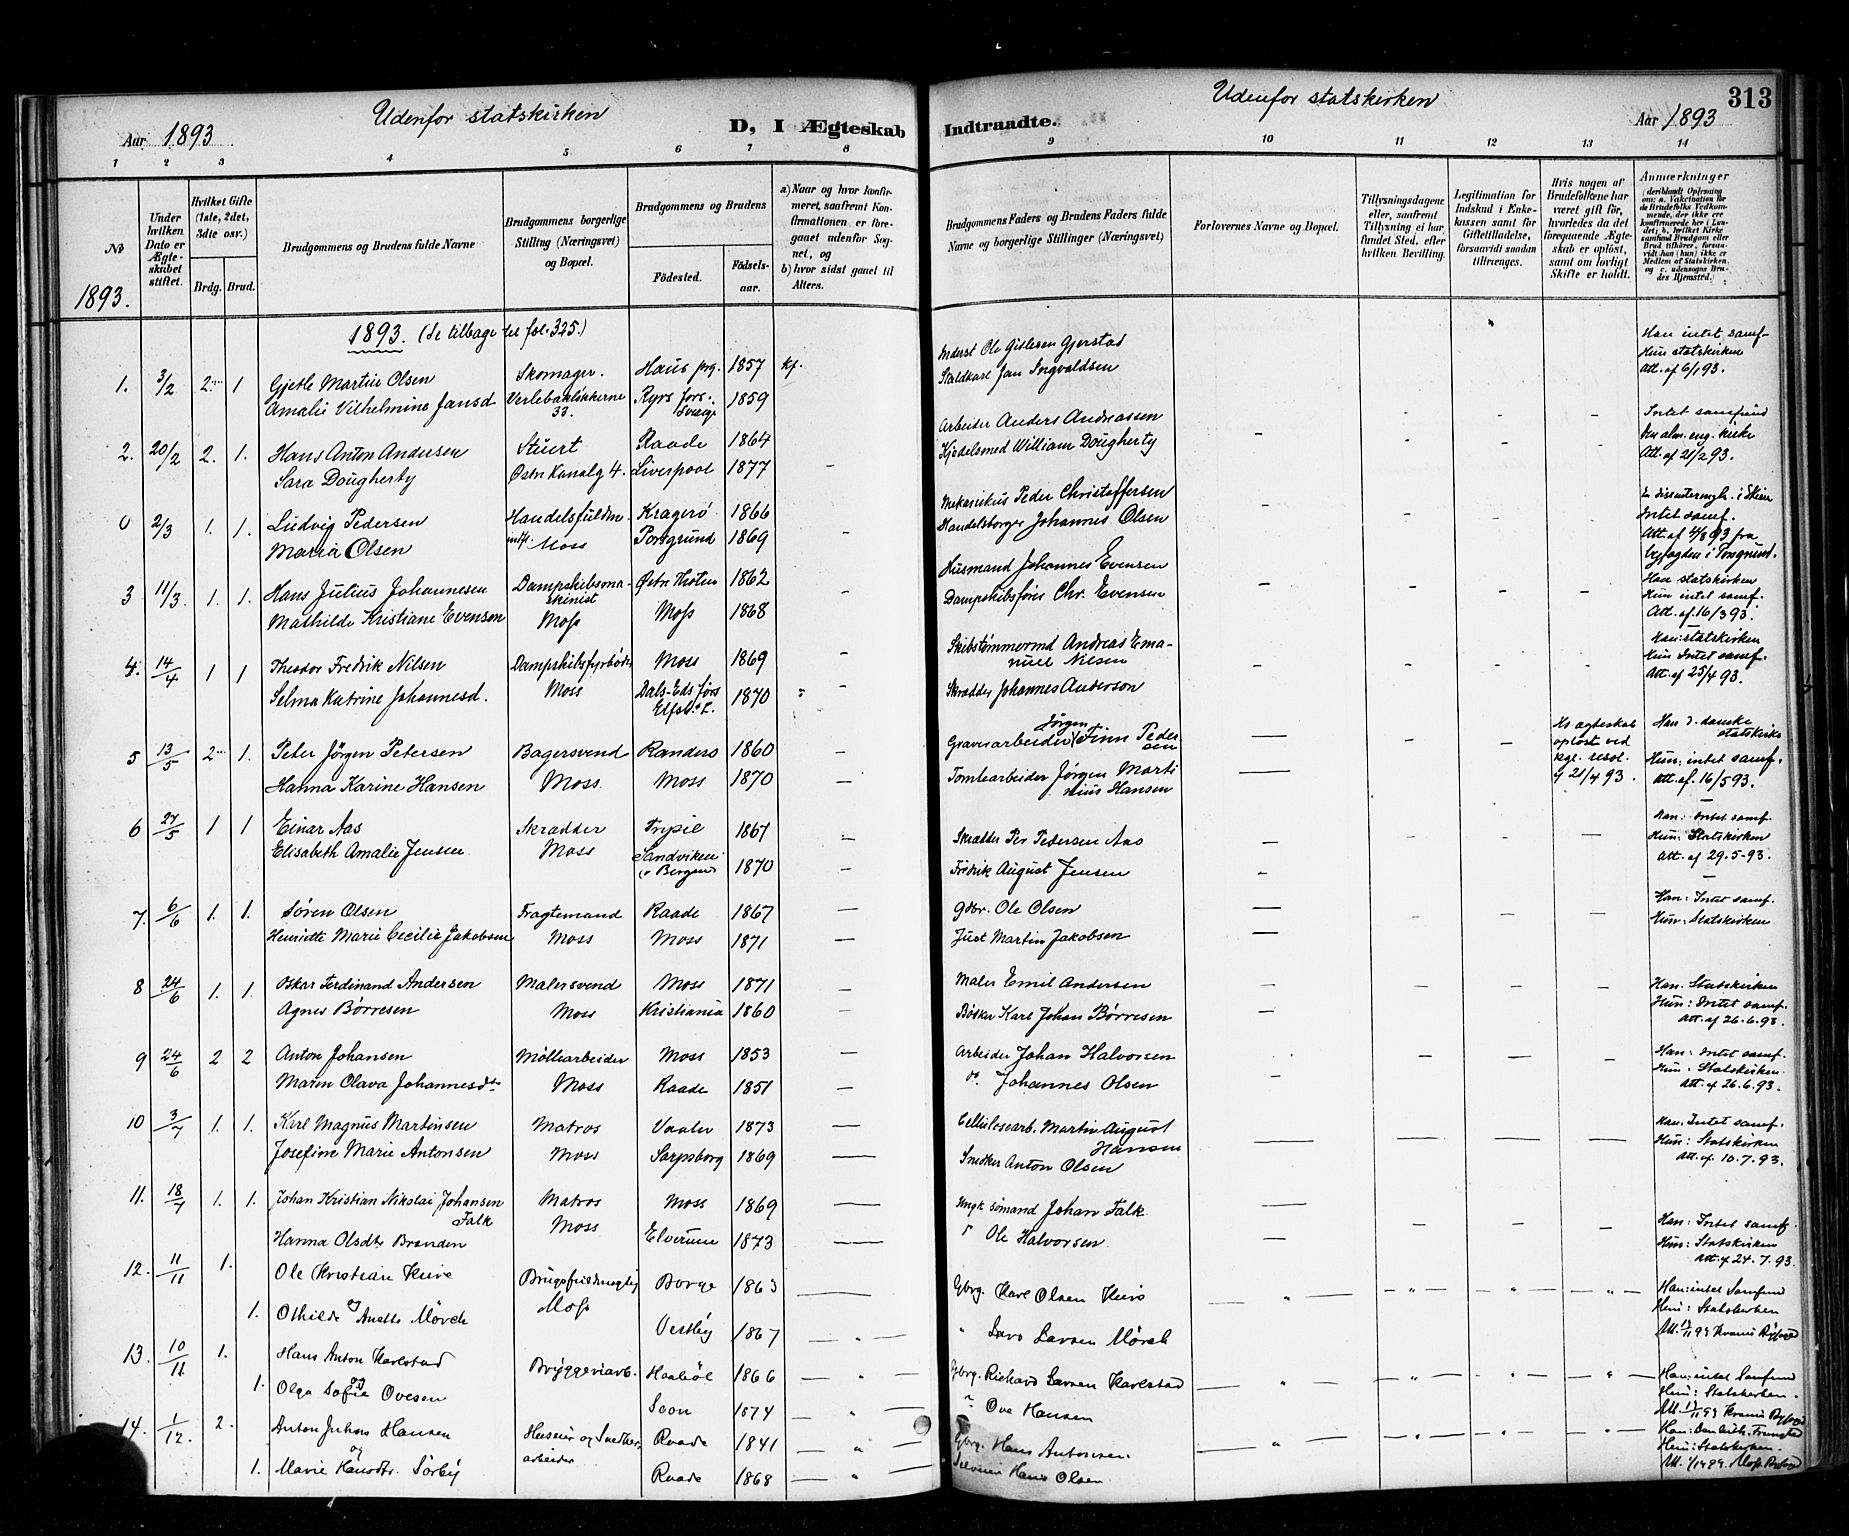 Udenfor statskirken
Aar 1893
D, I Ægteskab
1 2 3 4 5 6 7 8
No
1893.
Under hvilken Dato er Ægteskabet stiftet.
Hvilket Gifte (1ste, 2det, 3die osv.)
Brdg. Brud.
Brudgommens og Brudens fulde Navne
Brudgommens borgerlige Stilling (Næringsvei) og Bopæl.
Brudgommens og Brudens
Fødested.
Fødselsaar.
a) Naar og hvor konfirmeret, saafremt Konfirmationen er foregaaet udenfor Sognet, og
b) hvor sidst gaaet til Alters.
1893. (se tilbage til fol. 325.)
1. 3/2 2. 1 Gjetle Martin Olsen Skomager. Haus prg. 1857 kf.
Amalie Vilhelmine Jansd Verlebakkerne 33. Ryrs fors. Sverge 1859
2. 20/2 2. 1. Hans Anton Andersen Stuert Raade 1864
Sara Dougherty Østre Kanalg 4. Liverpool 1877 –
0 2/3 1. 1. Ludvig Pedersen Handelsfuldm Kragerø 1866
Maria Olsen Moss Porsgrund 1869 –
3 11/3. 1. 1. Hans Julius Johannesen Dampskibsmaskinist Østre Thoten 1862
Mathilde Kristiane Evensen Moss Moss 1868
4. 14/4 1 1 Theodor Fredrik Nilsen Dampskibsfyrbøder Moss 1869 –
Selma Katrine Johannesd. Moss Dals-Eds førs Elfsb. L. 1870 –
5 13/5 2 1. Peter Jörgen Petersen Bagersvend Randers 1860 –
Hanna Karine Hansen Moss Moss 1870 –
6 27/5 1 1 Einar Aas Skrædder Trysil 1867 –
Elisabeth Amalie Jensen Moss Sandviken v Bergen 1870 –
7. 6/6 1. 1. Søren Olsen Fragtemand Raade 1867 –
Henriette Marie Cecilie Jakobsen Moss Moss 1871 –
8 24/6 1. 1. Oskar Ferdinand Andersen Malersvend Moss 1871 –
Agnes Børresen Moss Kristiania 1860 –
9 24/6 2 2 Anton Johansen Møllearbeider Moss 1853 –
Maren Olava Johannesdtr Moss Raade 1851 –
10 3/7 1. 1. Karl Magnus Martinsen Matros Vaaler 1873 –
Josefine Marie Antonsen Moss Sarpsborg 1869 –
11. 18/7 1. 1. Johan Kristian Nikolai Johansen Falk Matros Moss 1869 –
Hanna Olsdtr Brænden Moss Elverum 1873 –
12. 11/11 1. Ole Kristian Kure Borge 1863 –
1. Othilde Anette Mörch Moss Vestby 1867 – „ –
13. 10/11 1. Hans Anton Karlstad Bryggeriarb. Haabøl 1866 – „ –
og
1. Olga Sofie Ovesen Soon 1874 – „ –
14. 1/12. 2. Anton Julius Hansen Huseier og Snedkerarbeider Raade 1841 – „ –
og
1. Marie Hansdtr. Sørby Raade 1868 – „ –
Udenfor statskirken
313
Indtraadte.
Aar 1893
9 10 11 12 13 14
Brudgommens Faders og Brudens Faders fulde Navne og borgerlige Stillinger (Næringsvei)
Forlovernes Navne og Bopæl.
Tillysningsdagene eller, saafremt Tillysning ei har fundet Sted, efter hvilken Bevilling.
Legitimation for Indskud i Enkekassen samt for Giftetilladelse, forsaavidt saadan tiltrænges.
Hvis nogen af Brudefolkene har været gift før, hvorledes da det foregaaende Ægteskab er opløst, samt om lovligt Skifte er holdt.
Anmærkninger (deriblandt Oplysning om: a. Vakcination for de Brudefolks Vedkommende, der ikke ere konfirmerede her i Landet; b. hvilket Kirkesamfund Brudgom eller Brud tilhører, forsaavidt han (hun) ikke er Medlem af Statskirken, og c. udensogns Brudes Hjemsted.
Inderst Ole Gitlesen Gjerstad
Staldkarl Jan Ingvaldsen
Han intet samf-
Hun statskirken
Att. af 6/1 93.
Arbeider Anders Andreassen
Kjedelsmed William Dougherty
Intet samfund
Den alm. eng. kirke
Att. af 21/2 93.
Mekanikus Peder Christoffersen
Handelsborger Johannes Olsen
En dissentermgh. i Skien
Intet samf.
Att. af 4/3 93 fra
byfogden i Porsgrund.
Husmand Johannes Evensen
Dampskibsfører Chr. Evensen
Han statskirken
Hun intet samf.
Att. af 16/3 93.
Skibstømmermd Andreas Emanuel Nilsen
Skrædder Johannes Anderson
Han: statskirken
Hun Intet samf.
Att. af 25/4 93.
Jörgen
Graverarbeider Finn Pedersen
Tomtearbeider Jörgen Martinius Hansen
Hs ægteskab
opløst ved
kgl. resol.
af 21/4 93.
Han d. danske
statskirke
Hun: intet samf.
Att. af. 16/5 93.
Skrædder Per Pedersen Aas
Fredrik August Jensen
Han: Intet samf.
Hun: Statskirken
Att. af 29.5-93.
gdbr. Ole Olsen
Just Martin Jakobsen
Han: Intet samf.
Hun: Statskirken
Maler Emil Andersen
Bødker Karl Johan Børresen
Han. Statskirken
Hun: Intet samf.
Att. af 26.6.93.
Arbeider Johan Halvorsen
do. Johannes Olsen
Han: Intet samf.
Hun: Statskirken
Att. af 26.6.93.
Cellulosearb. Martin August Hansen
Snedker Anton Olsen
Han: Intet samf.
Hun: Statskirken
Att. af. 10.7.93.
Ungk sømand Johan Falk
Ole Halvorsen
Han: Intet samf.
Hun: Statskirken
Att. af 24.7.93.
Gbrg. Karl Olsen Kure
„ Lars Larsen Mörch
Han: intet Samfund
Hun: Statskirken
Gbrg. Richard Larsen Karlstad
„ Ove Hansen
Han: intet Samfund
Hun: Statskirken.
Gbrg. Hans Antonsen
Hans Olsen
Hun: Statskirken.